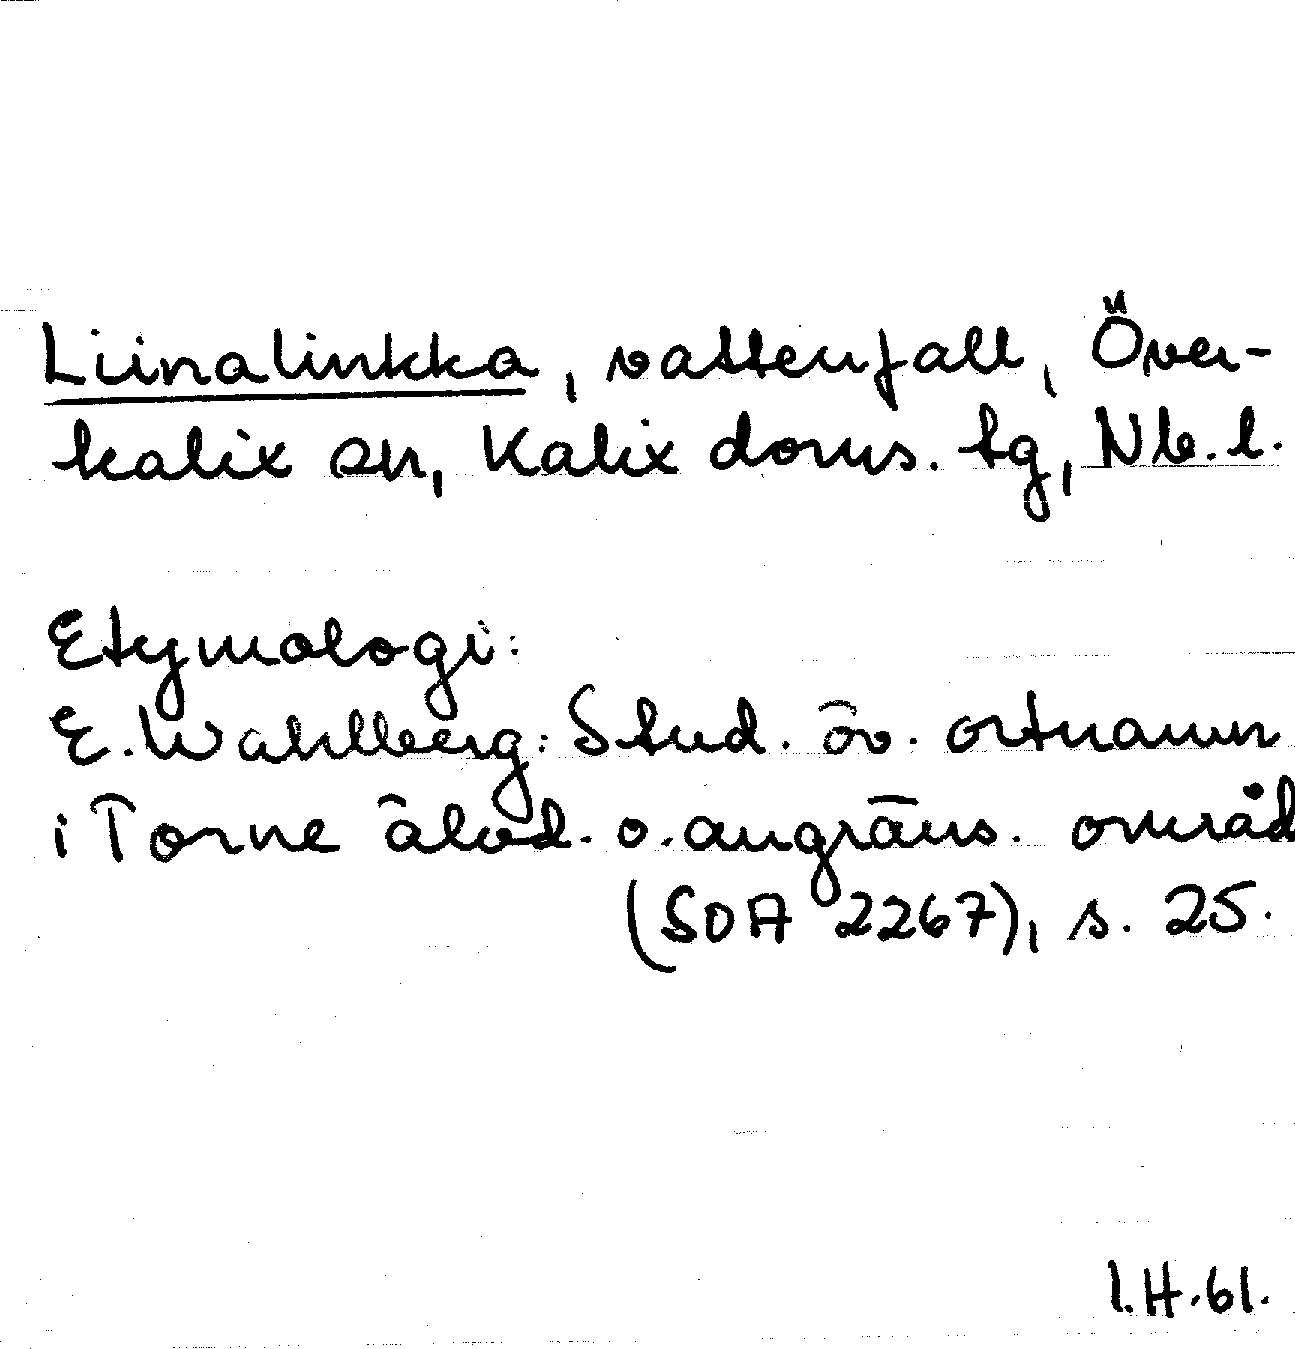 Liinalinkka, vattenfall, Över-
kalix sn, Kalix doms. tg, Nb. l.
Etymologi:
E. Wahlberg: Stud. öv. ortnamn
i Torne älvd. o. angräns. områd
(SOA 2267), s. 25.
I.H.61.